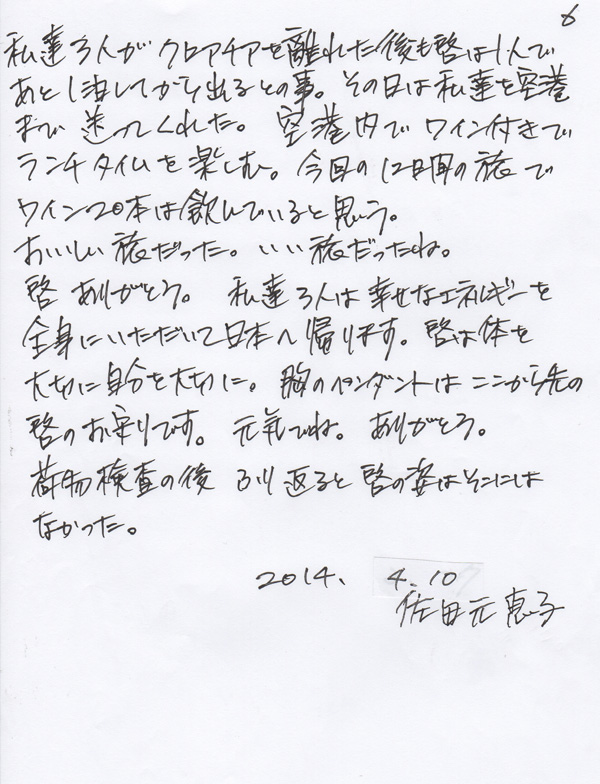 6
私達3人がクロアチアを離れた後も啓は1人で
あと1泊してから出るとの事。その日は私達を空港
まで送ってくれた。空港内でワイン付きで
ランチタイムを楽しむ。今回の12日間の旅で
ワイン20本は飲んでいると思う。
おいしい旅だった。いい旅だったね。
啓ありがとう。私達3人は幸せなエネルギーを
全身にいただいて日本へ帰ります。啓は体を
大切に自分を大切に。胸のペンダントはここから先の
啓のお守りです。元気でね。ありがとう。
荷物検査の後ふり返ると啓の姿はそこには
なかった。
2014. 4.10
佐田元恵子